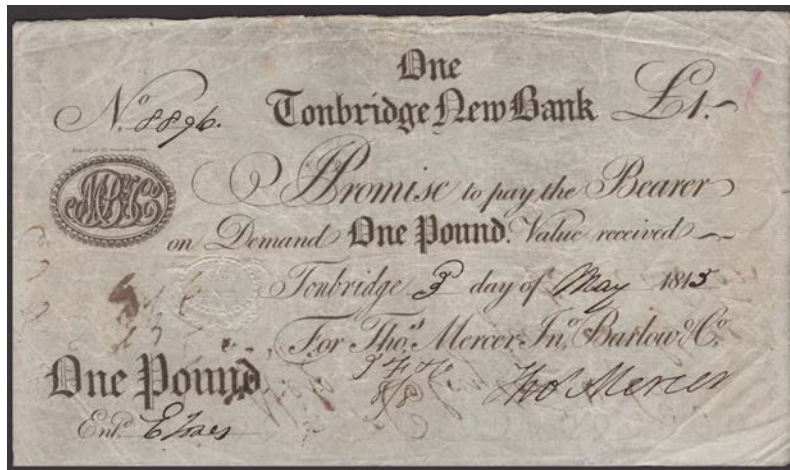 One
No. 8896. Tonbridge New Bank £1.-
I Promise to pay the Bearer
on Demand One Pound. Value received
Tonbridge 3 day of May 1813
For Thos. Mercer Jno. Barlow & Co.
One Pound
Thos Mercer
Entd.